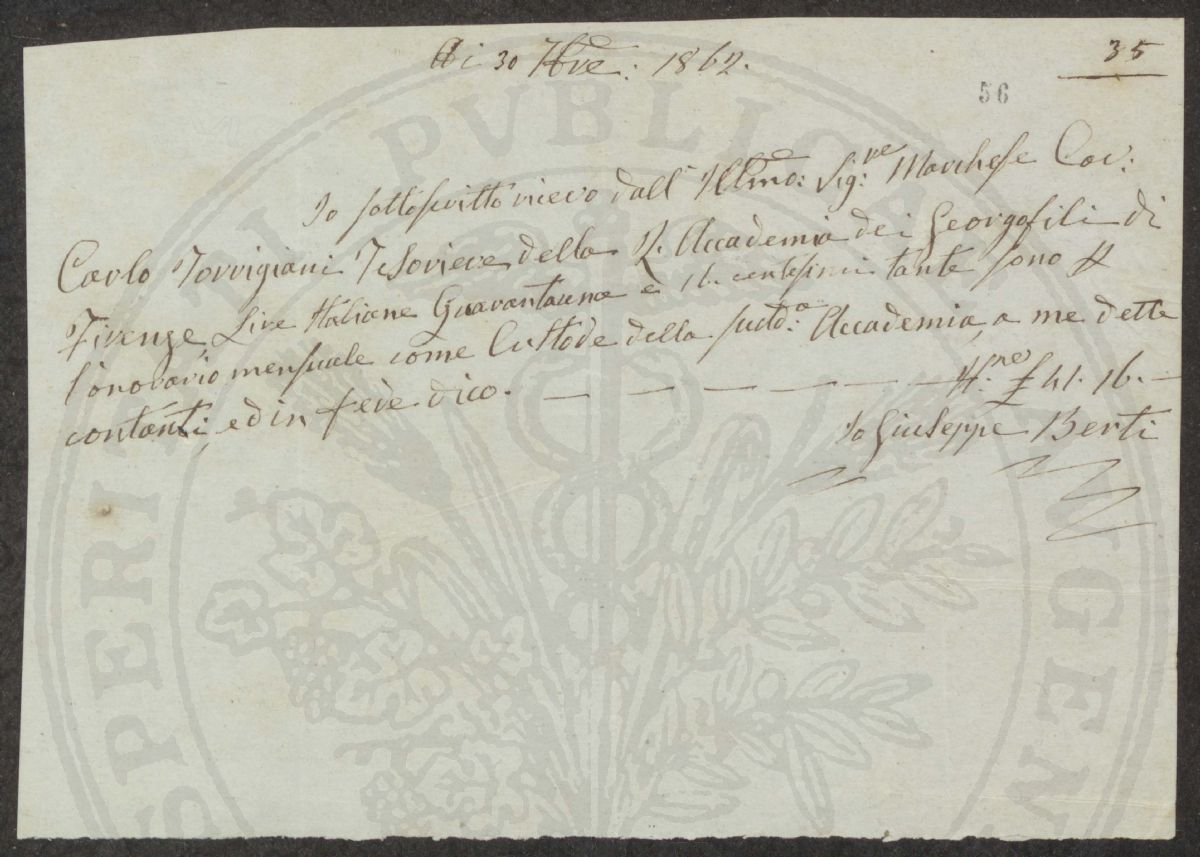 Adi 30 7bre: 1862.
35
56
Io sottoscritto ricevo dall' Illmo: Sig:re Marchese Cav:
Carlo Torrigiani Tesoriere della R. Accademia dei Georgofili di
Firenze, Lire Italiane Quarantauna e 16. centesimi tante sono p
l'onorario mensuale come Custode della sudd:a Accademia, a me dette
contanti, ed in fede dico. — — — — — — It:ne £ 41. 16. —
Io Giuseppe Berti
SPERITATI PVBLICAE AVGEN